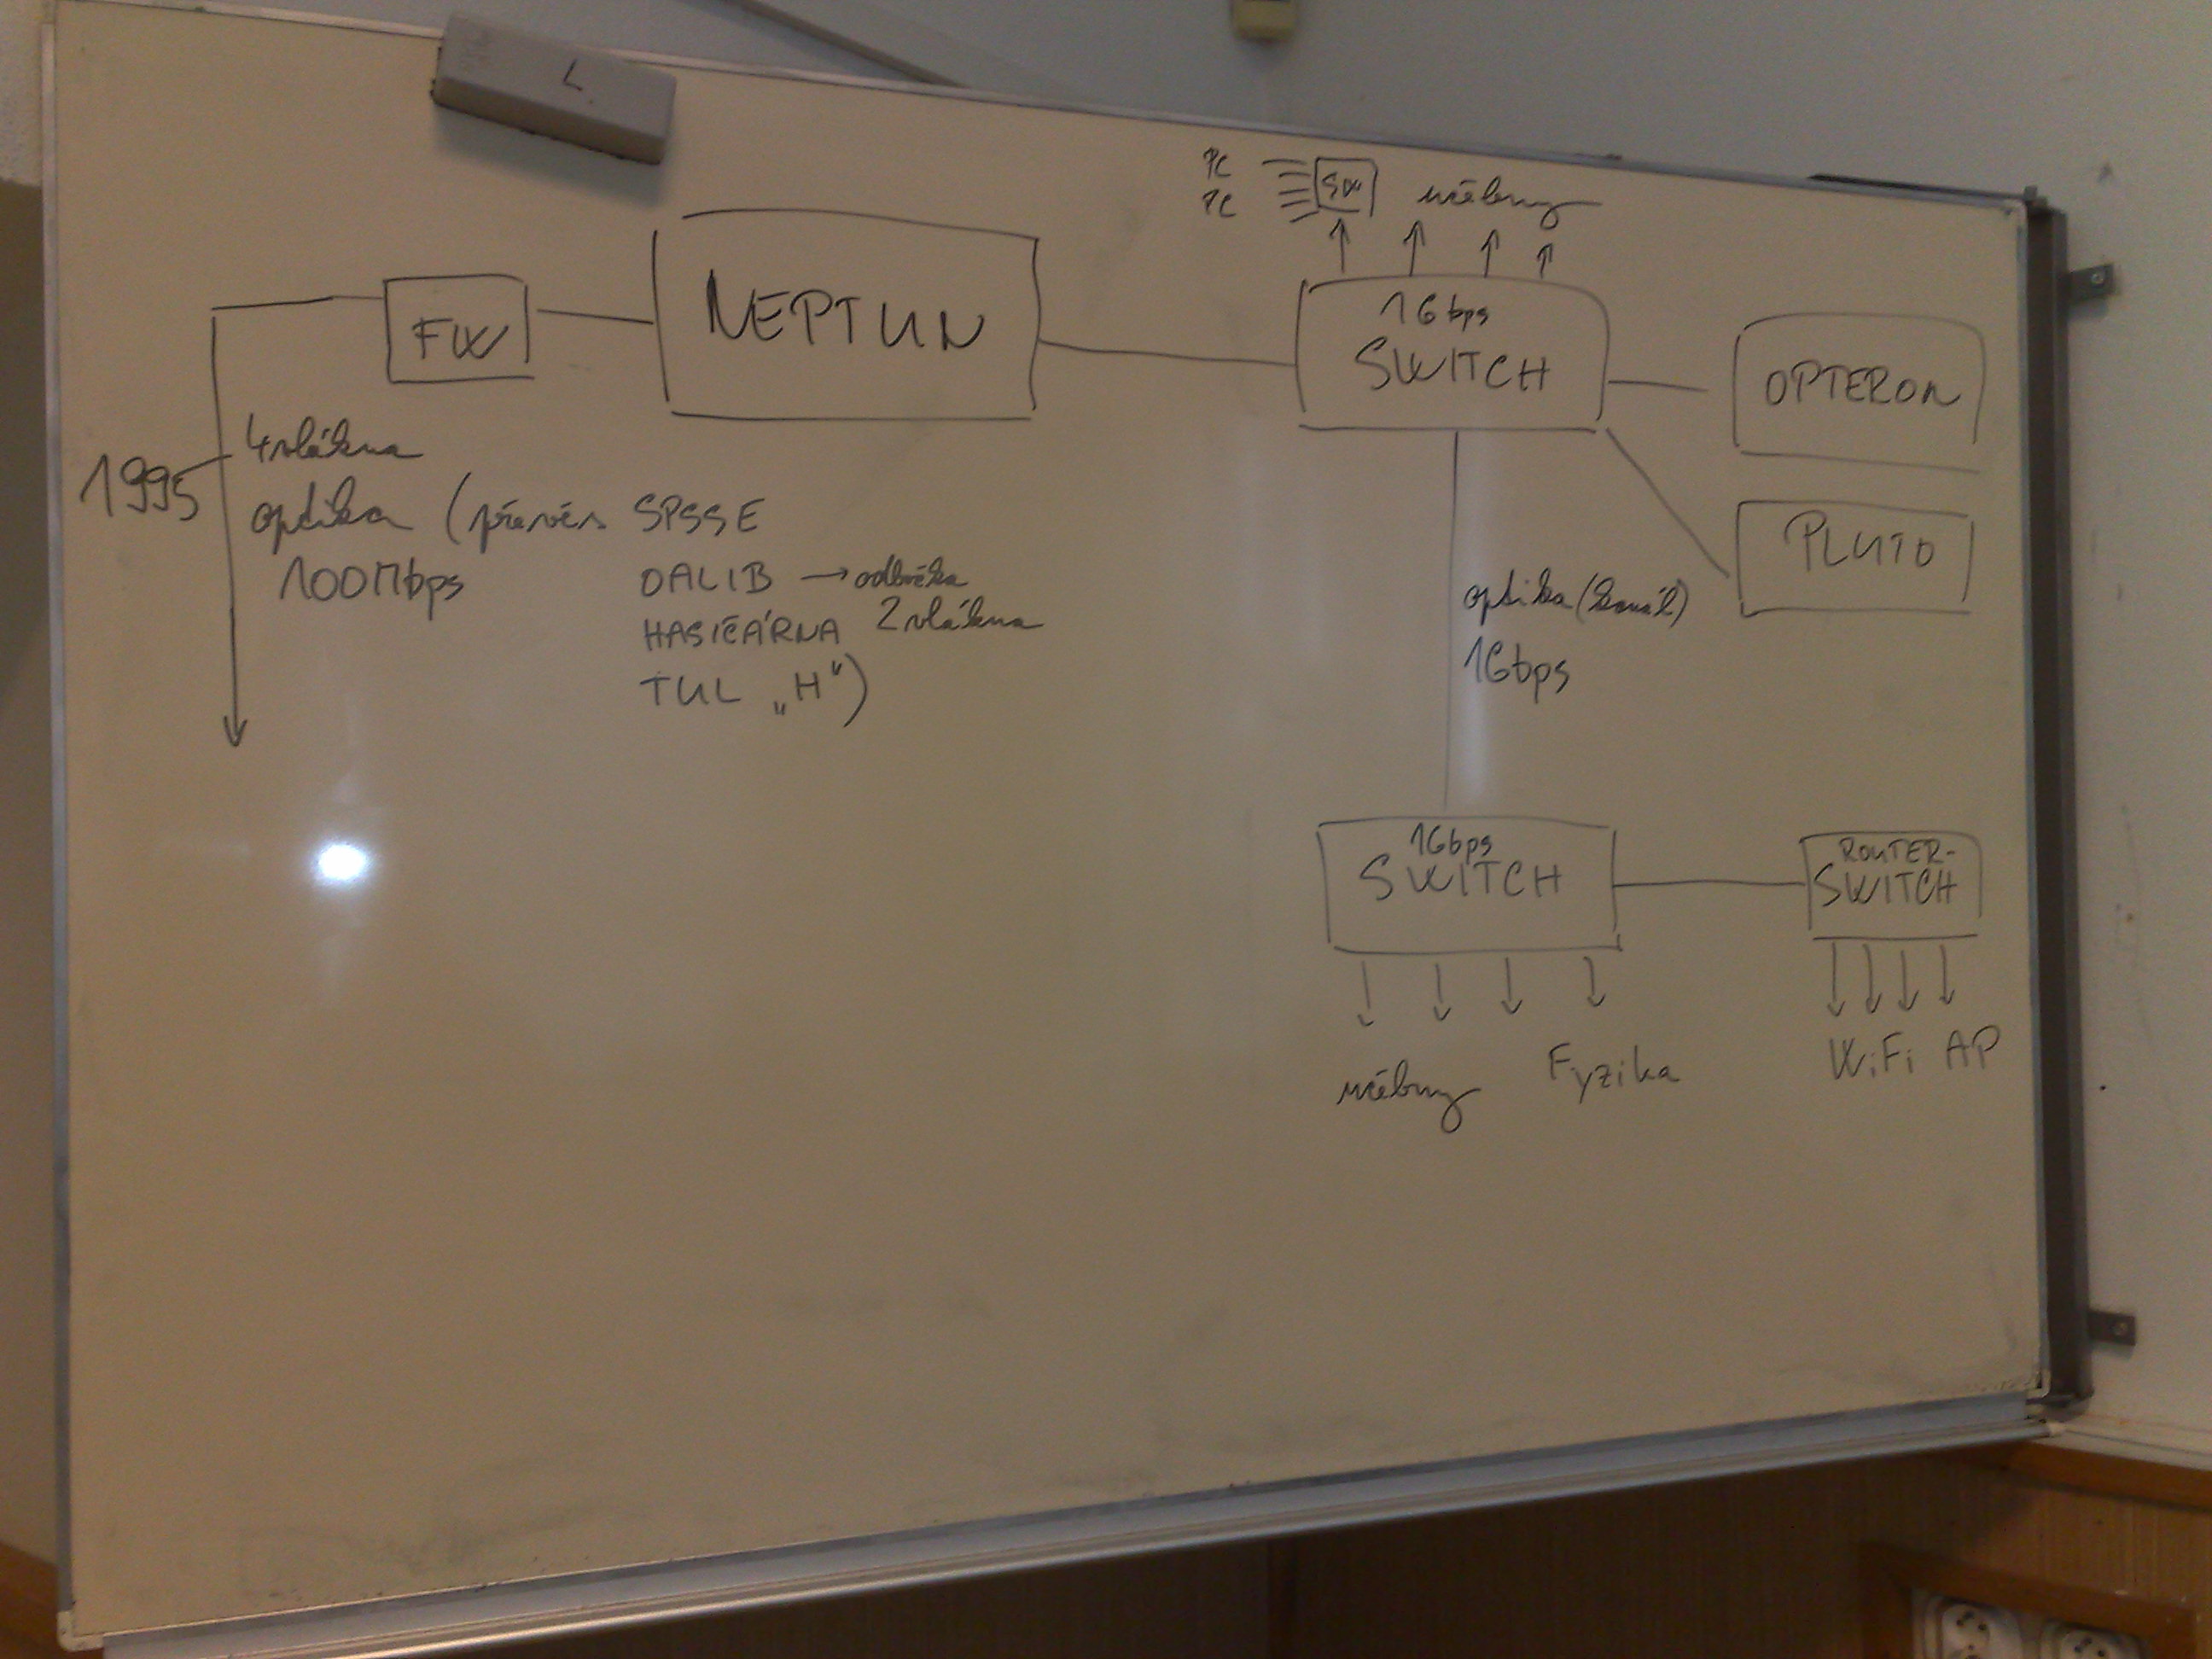 L.
PC
PC
SW
učebny
FW
NEPTUN
1Gbps
SWITCH
OPTERON
PLUTO
1995
4 vlákna
optika (převěs SPSSE
100Mbps
OALIB → odbočka
HASIČÁRNA 2 vlákna
TUL „H")
optika (kanál)
1Gbps
1Gbps
SWITCH
ROUTER-
SWITCH
učebny
Fyzika
WiFi AP